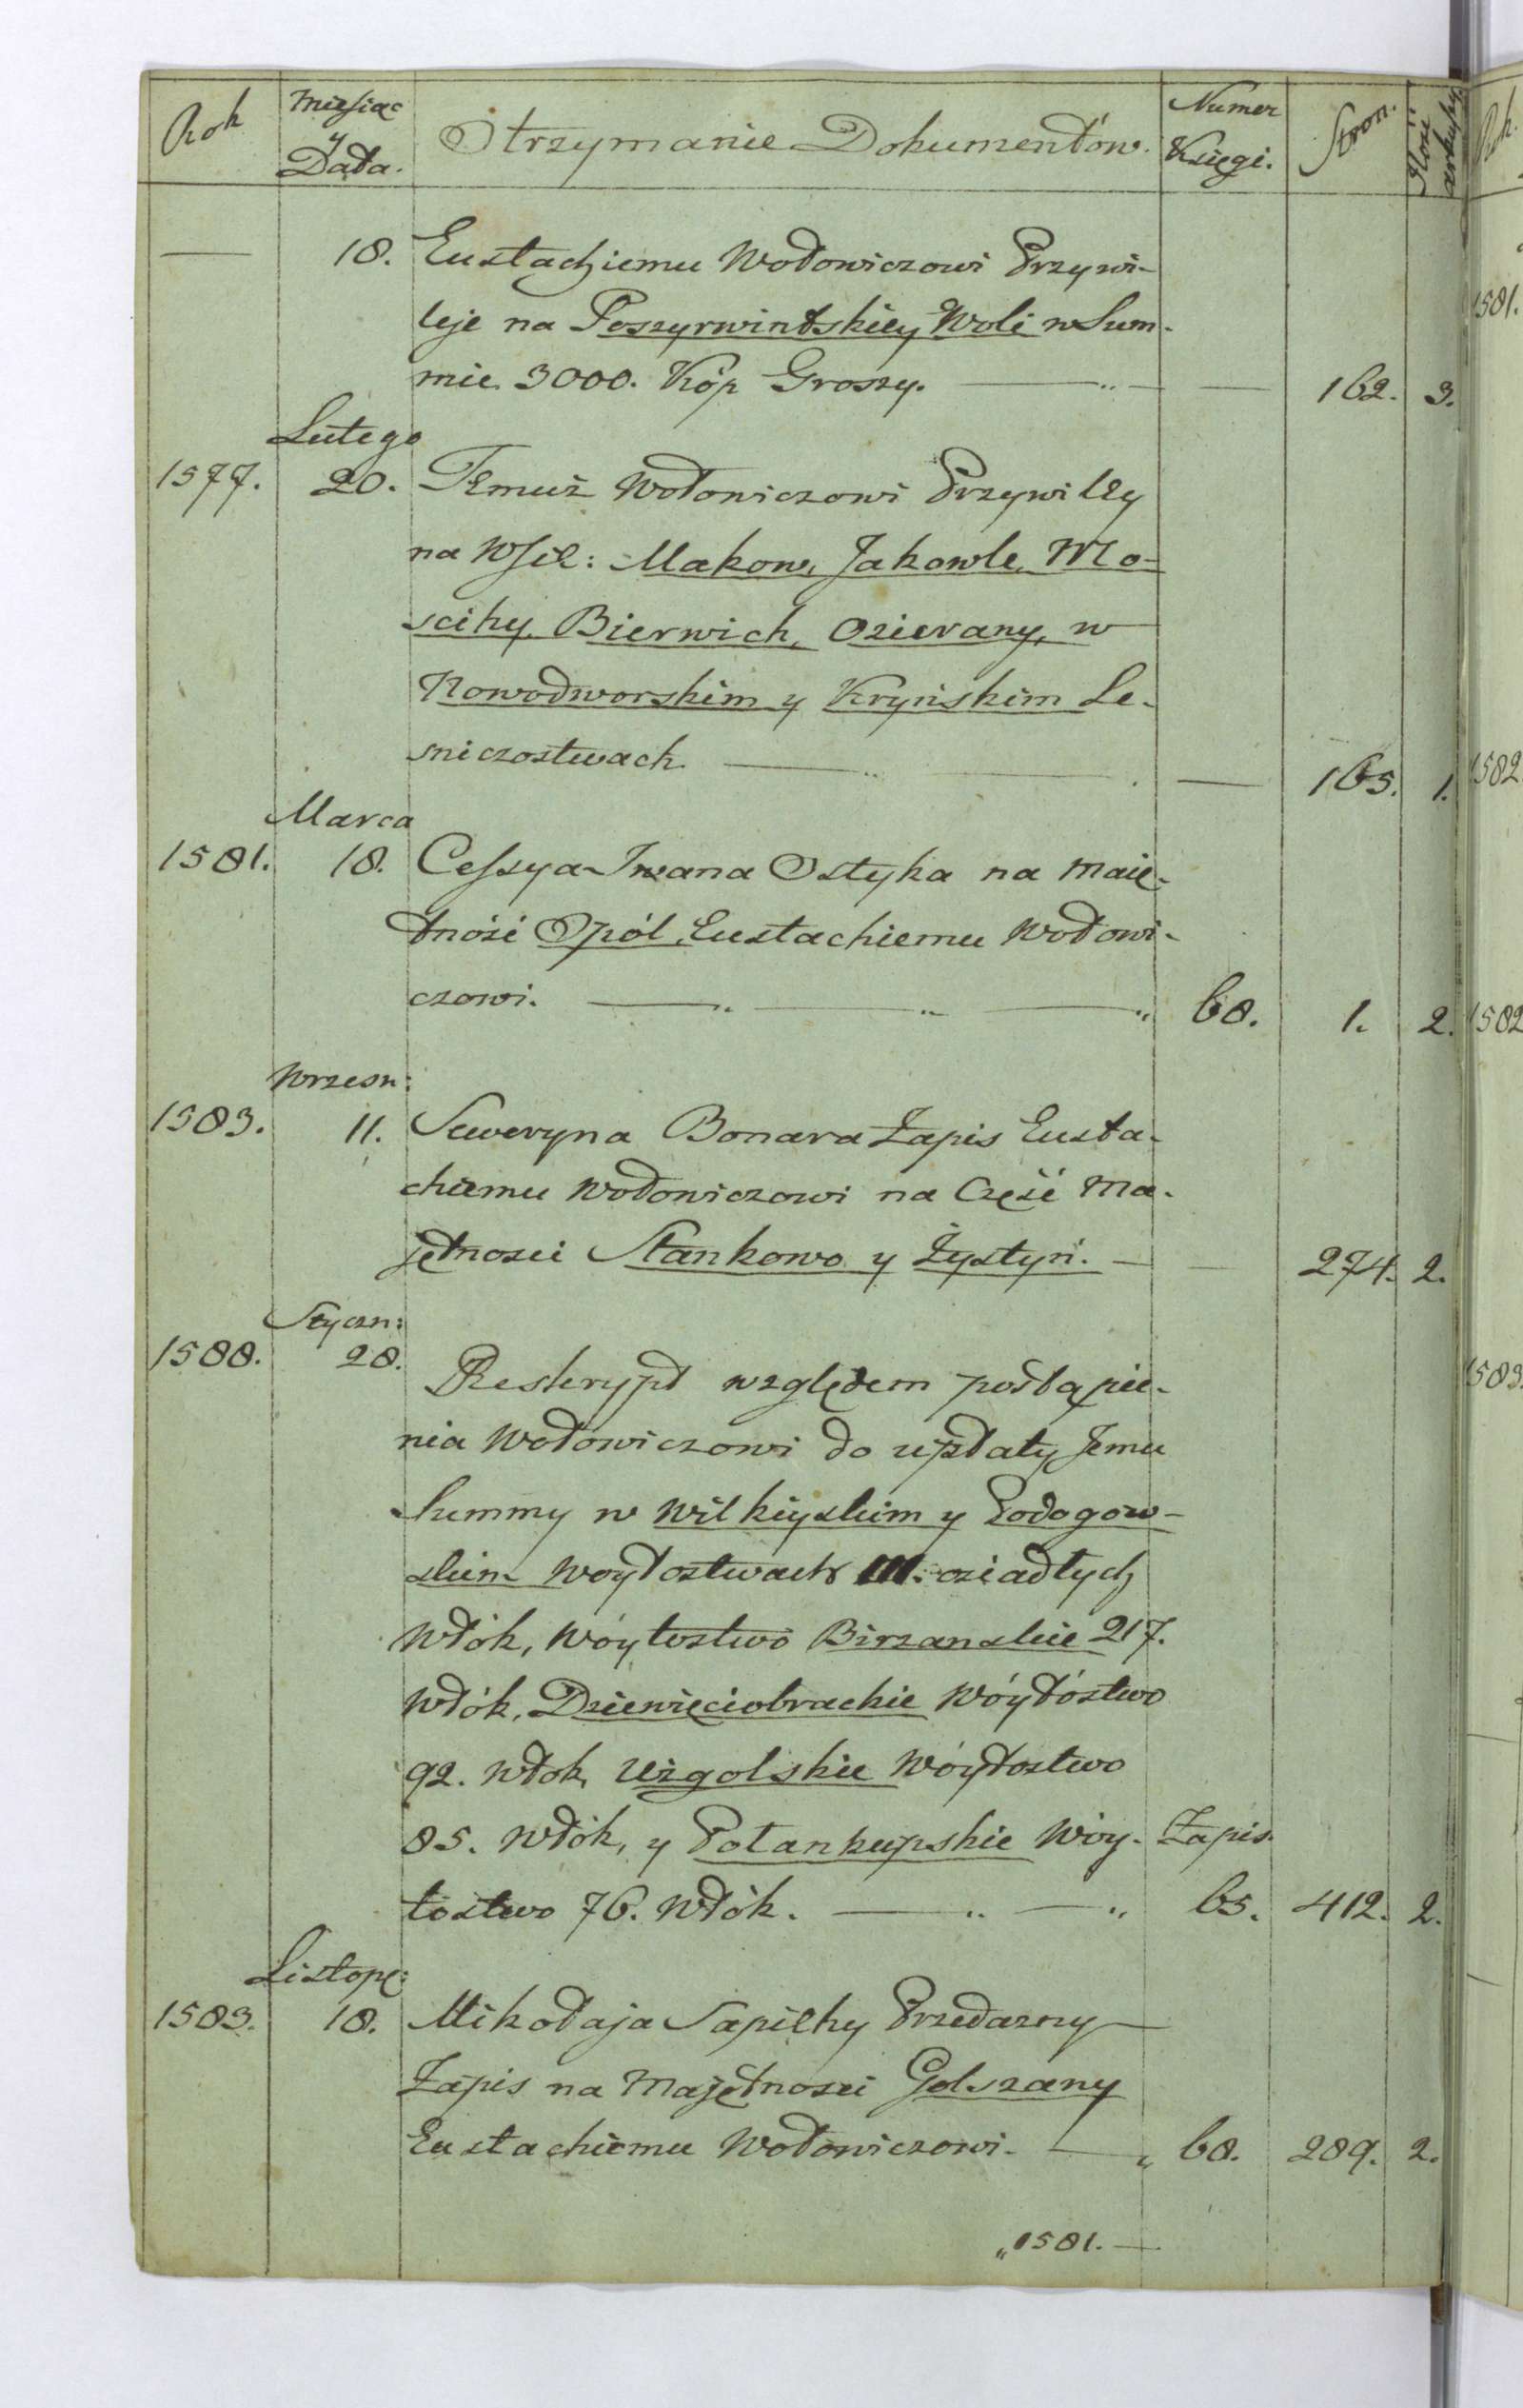 Rok
Miesiąc
y
Data.
Otrzymanie Dokumentów.
Numer
Księgi.
Stron.
Ilość
arkuszy
Rok.
— 18. Eustachiemu Wołowiczowi Przywi-
leje na Poszyrwintskiey Woli w Sum-
mie 3000. Kóp Groszy. — 162. 3.
Lutego
1577. 20. Temuż Wołowiczowi Przywiley
na Wsie: Makow, Jakowle, Mo-
scihy, Bierwich, Ozierany, w
Nowodworskim y Kryńskim Le-
sniczostwach. — 165. 1.
Marca
1581. 18. Cessya Iwana Ostyka na Maię-
tność Opól, Eustachiemu Wołowi-
czowi. — 68. 1. 2.
Wrzesn:
1583. 11. Seweryna Bonara Zapis Eusta-
chiemu Wołowiczowi na Część Ma-
jętnosci Stankowo y Żystyń. — 274. 2.
Styczn:
1588. 28. Reskrypt względem postąpie-
nia Wołowiczowi do upłaty Jemu
Summy w Wilkiyskim y Podogow-
skim Woytostwach 111. osiadłych
Włók, Wóytostwo Birzanskie 217.
Włók, Dziewięciobrackie Wóytóstwo
92. Włok, Uzgolskie Wóytostwo
85. Włók, y Potankupskie Wóy- Zapis.
tostwo 76. Włók. — 65. 412. 2.
Listop:
1583. 18. Mikołaja Sapiehy Przedazny
Zapis na Majętnosci Golszany
Eustachiemu Wołowiczowi. — 68. 289. 2.
„1581. —
1581.
1582
1582
1583.